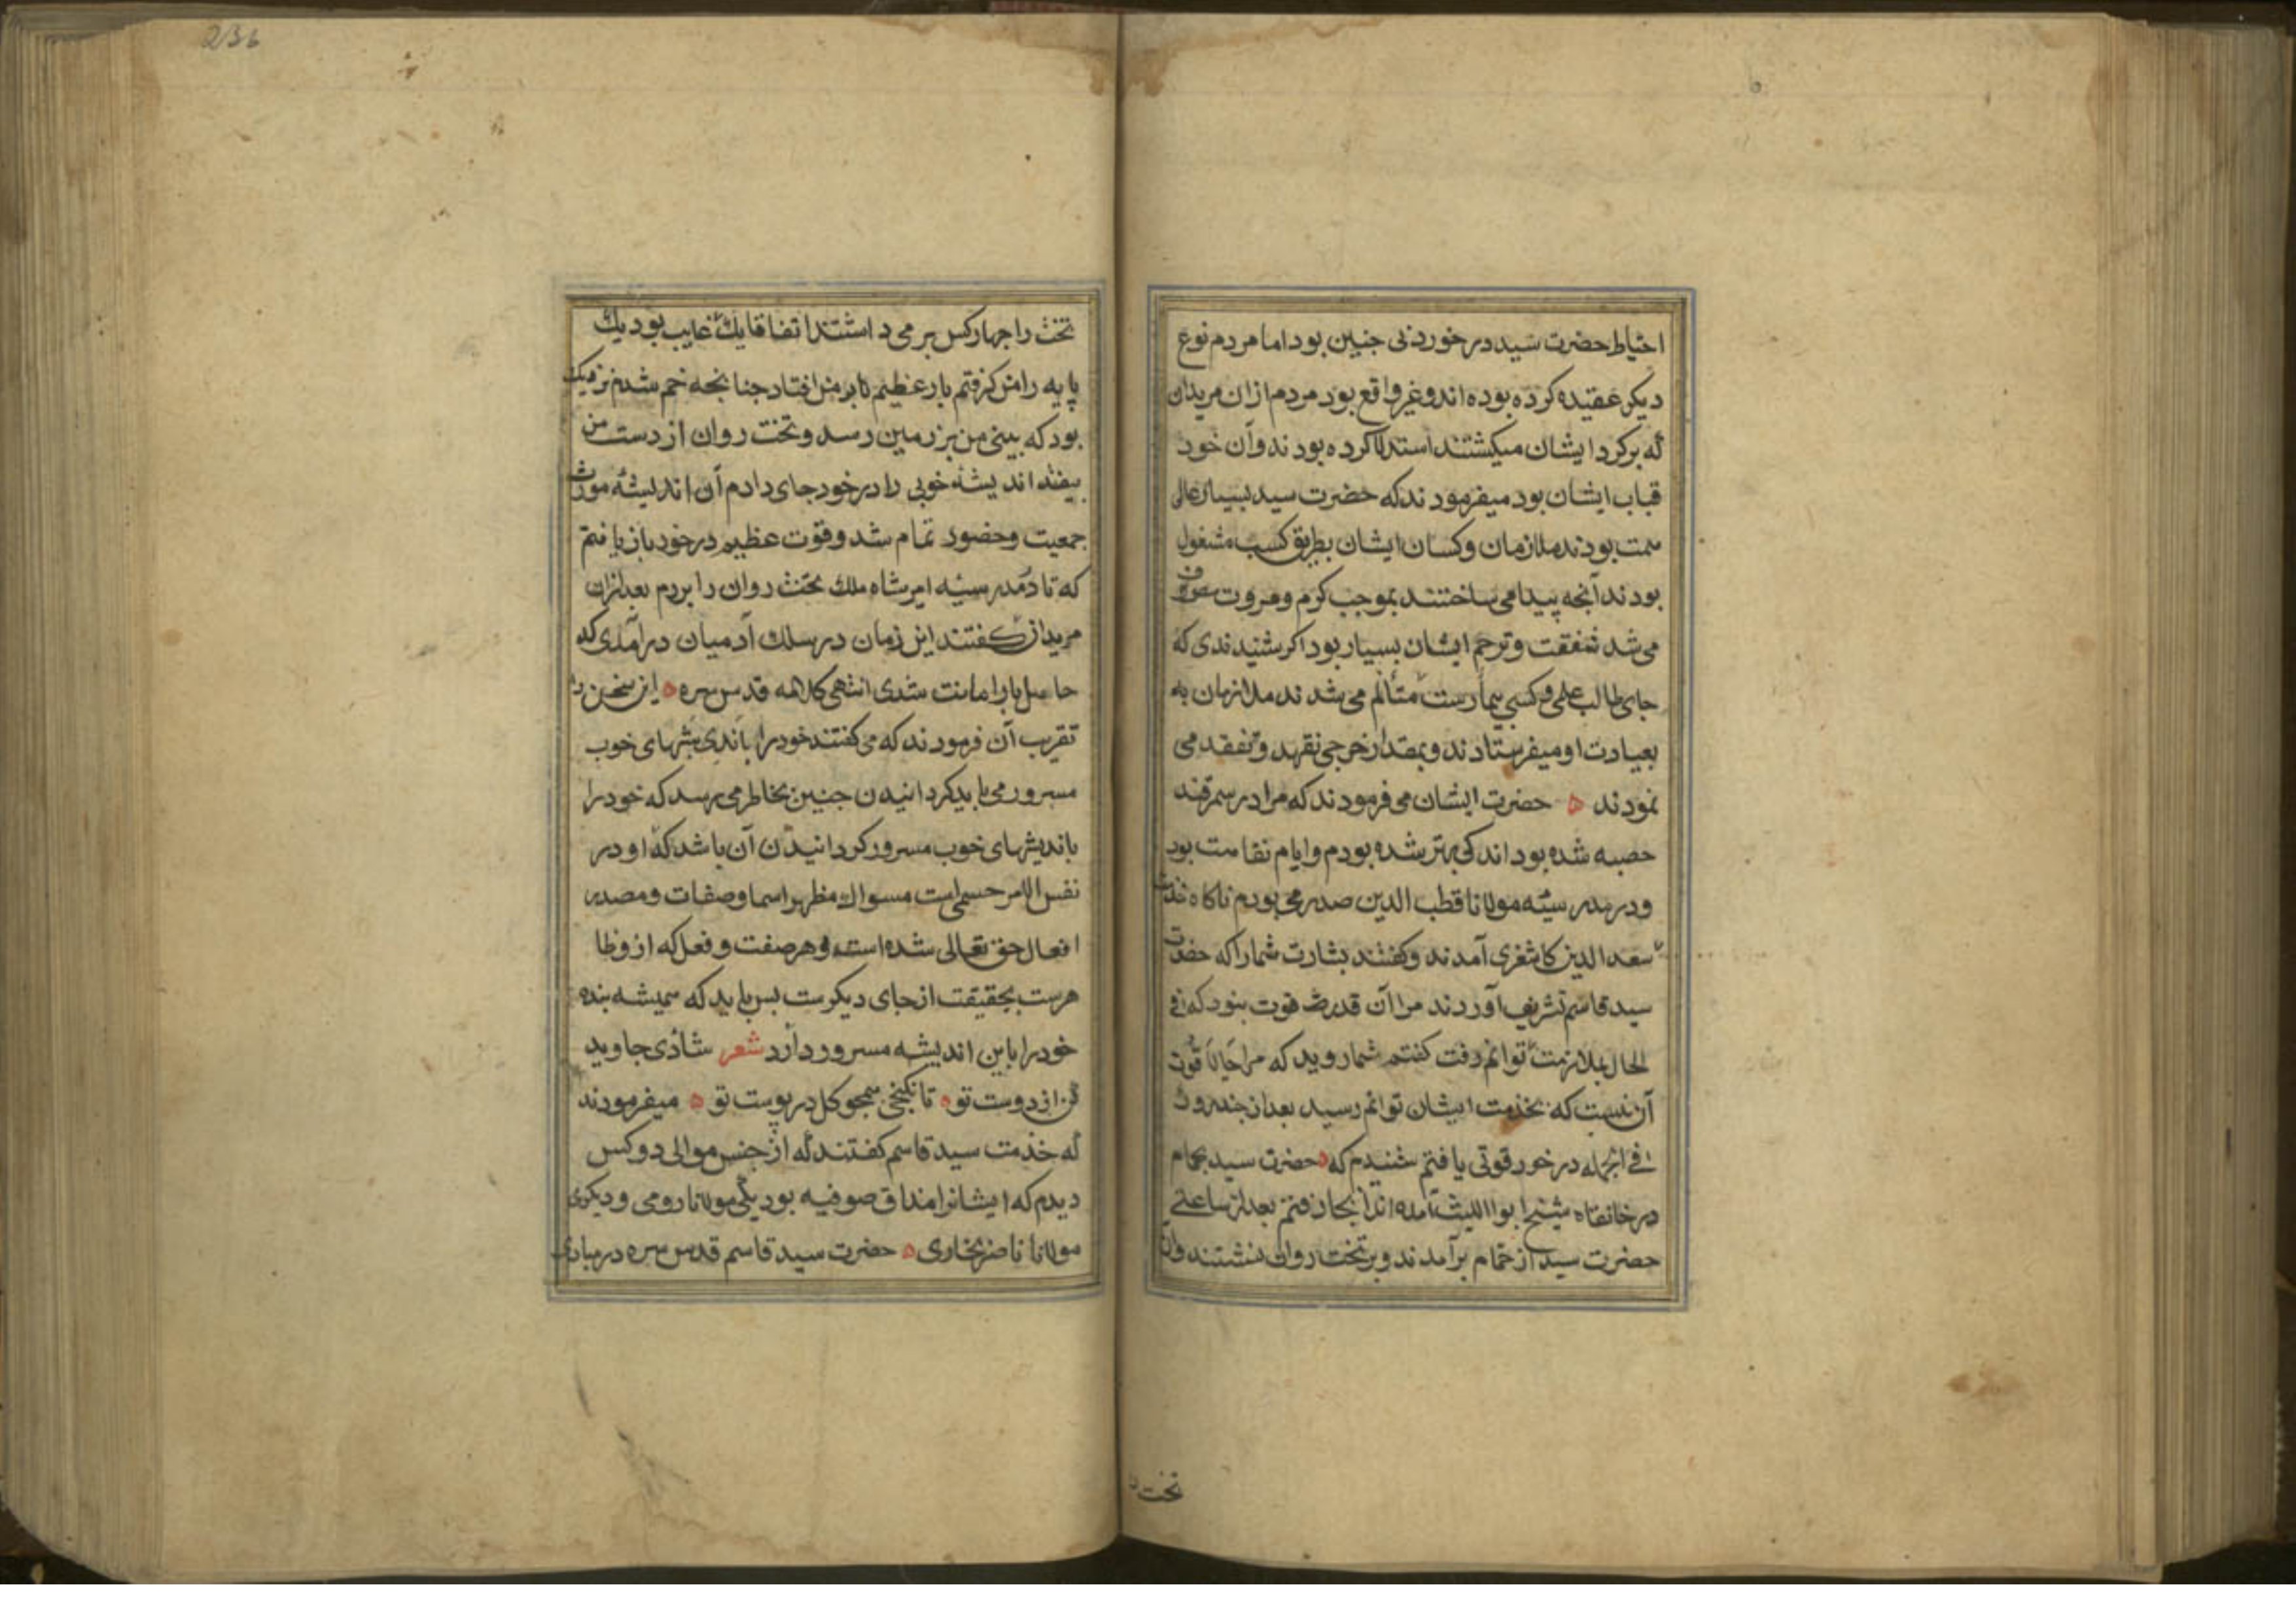 احتیاط حضرت سید در خوردنی جنین بود اما مردم نوع
دیکر عقیده کرده بوده اند و غیر واقع بود مردم ازان مریدان
که برکرد ایشان میکشتند استدلال کرده بودند وآن خود
قباب ایشان بود میفرمودند که حضرت سید بسیار عالی
همت بودند ملازمان وکسان ایشان بطریق کسب مشغول
بودند آنجه پیدا می ساختند بموجب کرم ومروت مصروف
می شد شفقت وترحم ایشان بسیار بود اکر شنیدندی که
جای طالب علمی وکسی بیمارست متألم می شدند ملازمان به
بعیادت او میفرستادند وبمقدار خرجی تعهد وتفقد می
نمودند ه حضرت ایشان می فرمودند که مرا در سمرقند
حصبه شده بود اندکی بهتر شده بودم وایام نقاهت بود
ودر مدرسهٔ مولانا قطب الدین صدر می بودم ناکاه خدمت
سعد الدین کاشغری آمدند وکفتند بشارت شمارا که حضرت
سید قاسم تشریف آوردند مرا آن قدر قوت نبود که فی
الحال بملازمت توانم رفت کفتم شما روید که مرا حالا قوت
آن نیست که بخدمت ایشان توانم رسید بعد از جند روز
فی الجمله در خود قوتی یافتم شنیدم که ه حضرت سید بحمام
در خانقاه شیخ ابو اللیث آمده اند آنجا رفتم بعد از ساعتی
حضرت سید از حمام برآمدند وبر تخت روان نشستند وآن
تخت را
236
تخت را جهار کس بر می داشتند اتفاقا یک غایب بود یک
پایه را من کرفتم بار عظیم تا بر من افتاد جنانجه خم شدم نزدیک
بود که بینی من بر زمین رسد وتخت روان از دست من
بیفتد اندیشهٔ خوبی را در خود جای دادم آن اندیشه مورث
جمعیت وحضور تمام شد وقوت عظیم در خود باز یافتم
که تا در مدرسهٔ امیر شاه ملک تخت روان را بردم بعد ازان
مریدان کفتند این زمان در سلک آدمیان درآمدی که
حامل بار امانت شدی انتهی کلامه قدس سره ه این سخن را
تقریب آن فرمودند که می کفتند خود را باندیشهای خوب
مسرور می باید کردانیدن جنین بخاطر می رسد که خود را
باندیشهای خوب مسرور کردانیدن آن باشد که او در
نفس الامر حسمی است مسوا که مظهر اسما وصفات ومصدر
افعال حق تعالی شده است وهر صفت وفعل که ازو ظا
هرست بحقیقت از جای دیکرست بس باید که همیشه بنده
خود را باین اندیشه مسرور دارد شعر شادی جاوید
کن از دوست تو ه تا نکنجی همجو کل در پوست تو ه میفرمودند
که خدمت سید قاسم کفتند که از جنس موالی دو کس
دیدم که ایشانرا مذاق صوفیه بود یکی مولانا رومی ودیکری
مولانا ناصر بخاری ه حضرت سید قاسم قدس سره در مبادی